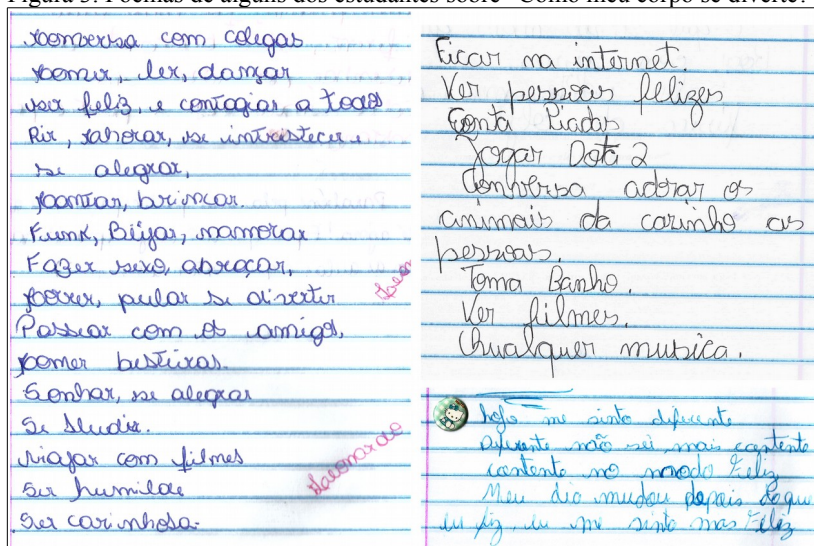 Figura 3: Poemas de alguns dos estudantes sobre "Como meu corpo se diverte?"
conversa com colegas
comer, ler, dançar
ser feliz, e contagiar a todos
Rir, saborear, se intristecer e
se alegrar,
cantar, brincar.
Funk, Beijar, namorar
Fazer sexo, abraçar,
correr, pular se divertir
Passear com os amigos,
comer besteiras.
Sonhar, se alegrar
Se Iludir.
viajar com filmes
Ser humilde
Ser carinhosa.
Ficar na internet.
Ver pessoas felizes
Conta Piadas
Jogar Dota 2
Conversa adorar os
animais da carinho as
pessoas.
Toma Banho.
Ver filmes.
Qualquer musica.
hoje me sinto diferente
Diferente não sei mais contente
contente no modo Feliz
Meu dia mudou depois do que
eu fiz, eu me sinto mas Feliz